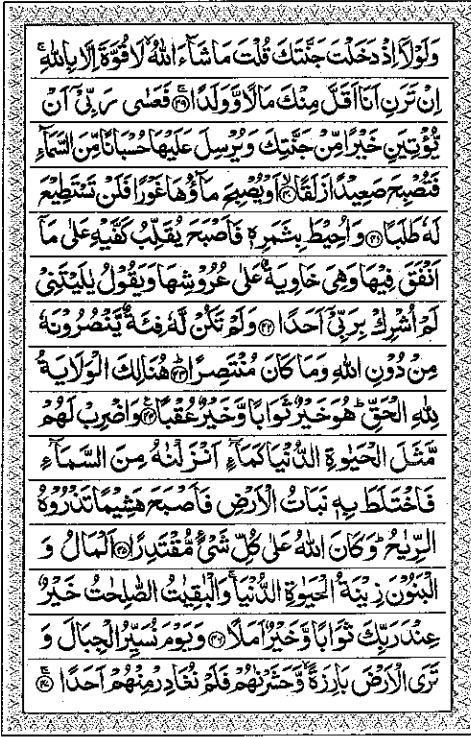 وَلَوْلَاۤ اِذْ دَخَلْتَ جَنَّتَكَ قُلْتَ مَا شَآءَ اللّٰهُ ۙ لَا قُوَّةَ اِلَّا بِاللّٰهِ ۚ
اِنْ تَرَنِ اَنَا اَقَلَّ مِنْكَ مَالًا وَّوَلَدًا ۚ﴿۳۹﴾ فَعَسٰى رَبِّىْۤ اَنْ
يُّؤْتِيَنِ خَيْرًا مِّنْ جَنَّتِكَ وَيُرْسِلَ عَلَيْهَا حُسْبَانًا مِّنَ السَّمَآءِ
فَتُصْبِحَ صَعِيْدًا زَلَقًا ۙ﴿۴۰﴾ اَوْ يُصْبِحَ مَآؤُهَا غَوْرًا فَلَنْ تَسْتَطِيْعَ
لَهٗ طَلَبًا ﴿۴۱﴾ وَاُحِيْطَ بِثَمَرِهٖ فَاَصْبَحَ يُقَلِّبُ كَفَّيْهِ عَلٰى مَاۤ
اَنْفَقَ فِيْهَا وَهِىَ خَاوِيَةٌ عَلٰى عُرُوْشِهَا وَيَقُوْلُ يٰلَيْتَنِىْ
لَمْ اُشْرِكْ بِرَبِّىْۤ اَحَدًا ﴿۴۲﴾ وَلَمْ تَكُنْ لَّهٗ فِئَةٌ يَّنْصُرُوْنَهٗ
مِنْ دُوْنِ اللّٰهِ وَمَا كَانَ مُنْتَصِرًا ؕ﴿۴۳﴾ هُنَالِكَ الْوَلَايَةُ
لِلّٰهِ الْحَقِّ ؕ هُوَ خَيْرٌ ثَوَابًا وَّخَيْرٌ عُقْبًا ﴿۴۴﴾ وَاضْرِبْ لَهُمْ
مَّثَلَ الْحَيٰوةِ الدُّنْيَا كَمَآءٍ اَنْزَلْنٰهُ مِنَ السَّمَآءِ
فَاخْتَلَطَ بِهٖ نَبَاتُ الْاَرْضِ فَاَصْبَحَ هَشِيْمًا تَذْرُوْهُ
الرِّيٰحُ ؕ وَكَانَ اللّٰهُ عَلٰى كُلِّ شَىْءٍ مُّقْتَدِرًا ﴿۴۵﴾ اَلْمَالُ وَ
الْبَنُوْنَ زِيْنَةُ الْحَيٰوةِ الدُّنْيَا ۚ وَالْبٰقِيٰتُ الصّٰلِحٰتُ خَيْرٌ
عِنْدَ رَبِّكَ ثَوَابًا وَّخَيْرٌ اَمَلًا ﴿۴۶﴾ وَيَوْمَ نُسَيِّرُ الْجِبَالَ وَ
تَرَى الْاَرْضَ بَارِزَةً ۙ وَّحَشَرْنٰهُمْ فَلَمْ نُغَادِرْ مِنْهُمْ اَحَدًا ۚ﴿۴۷﴾